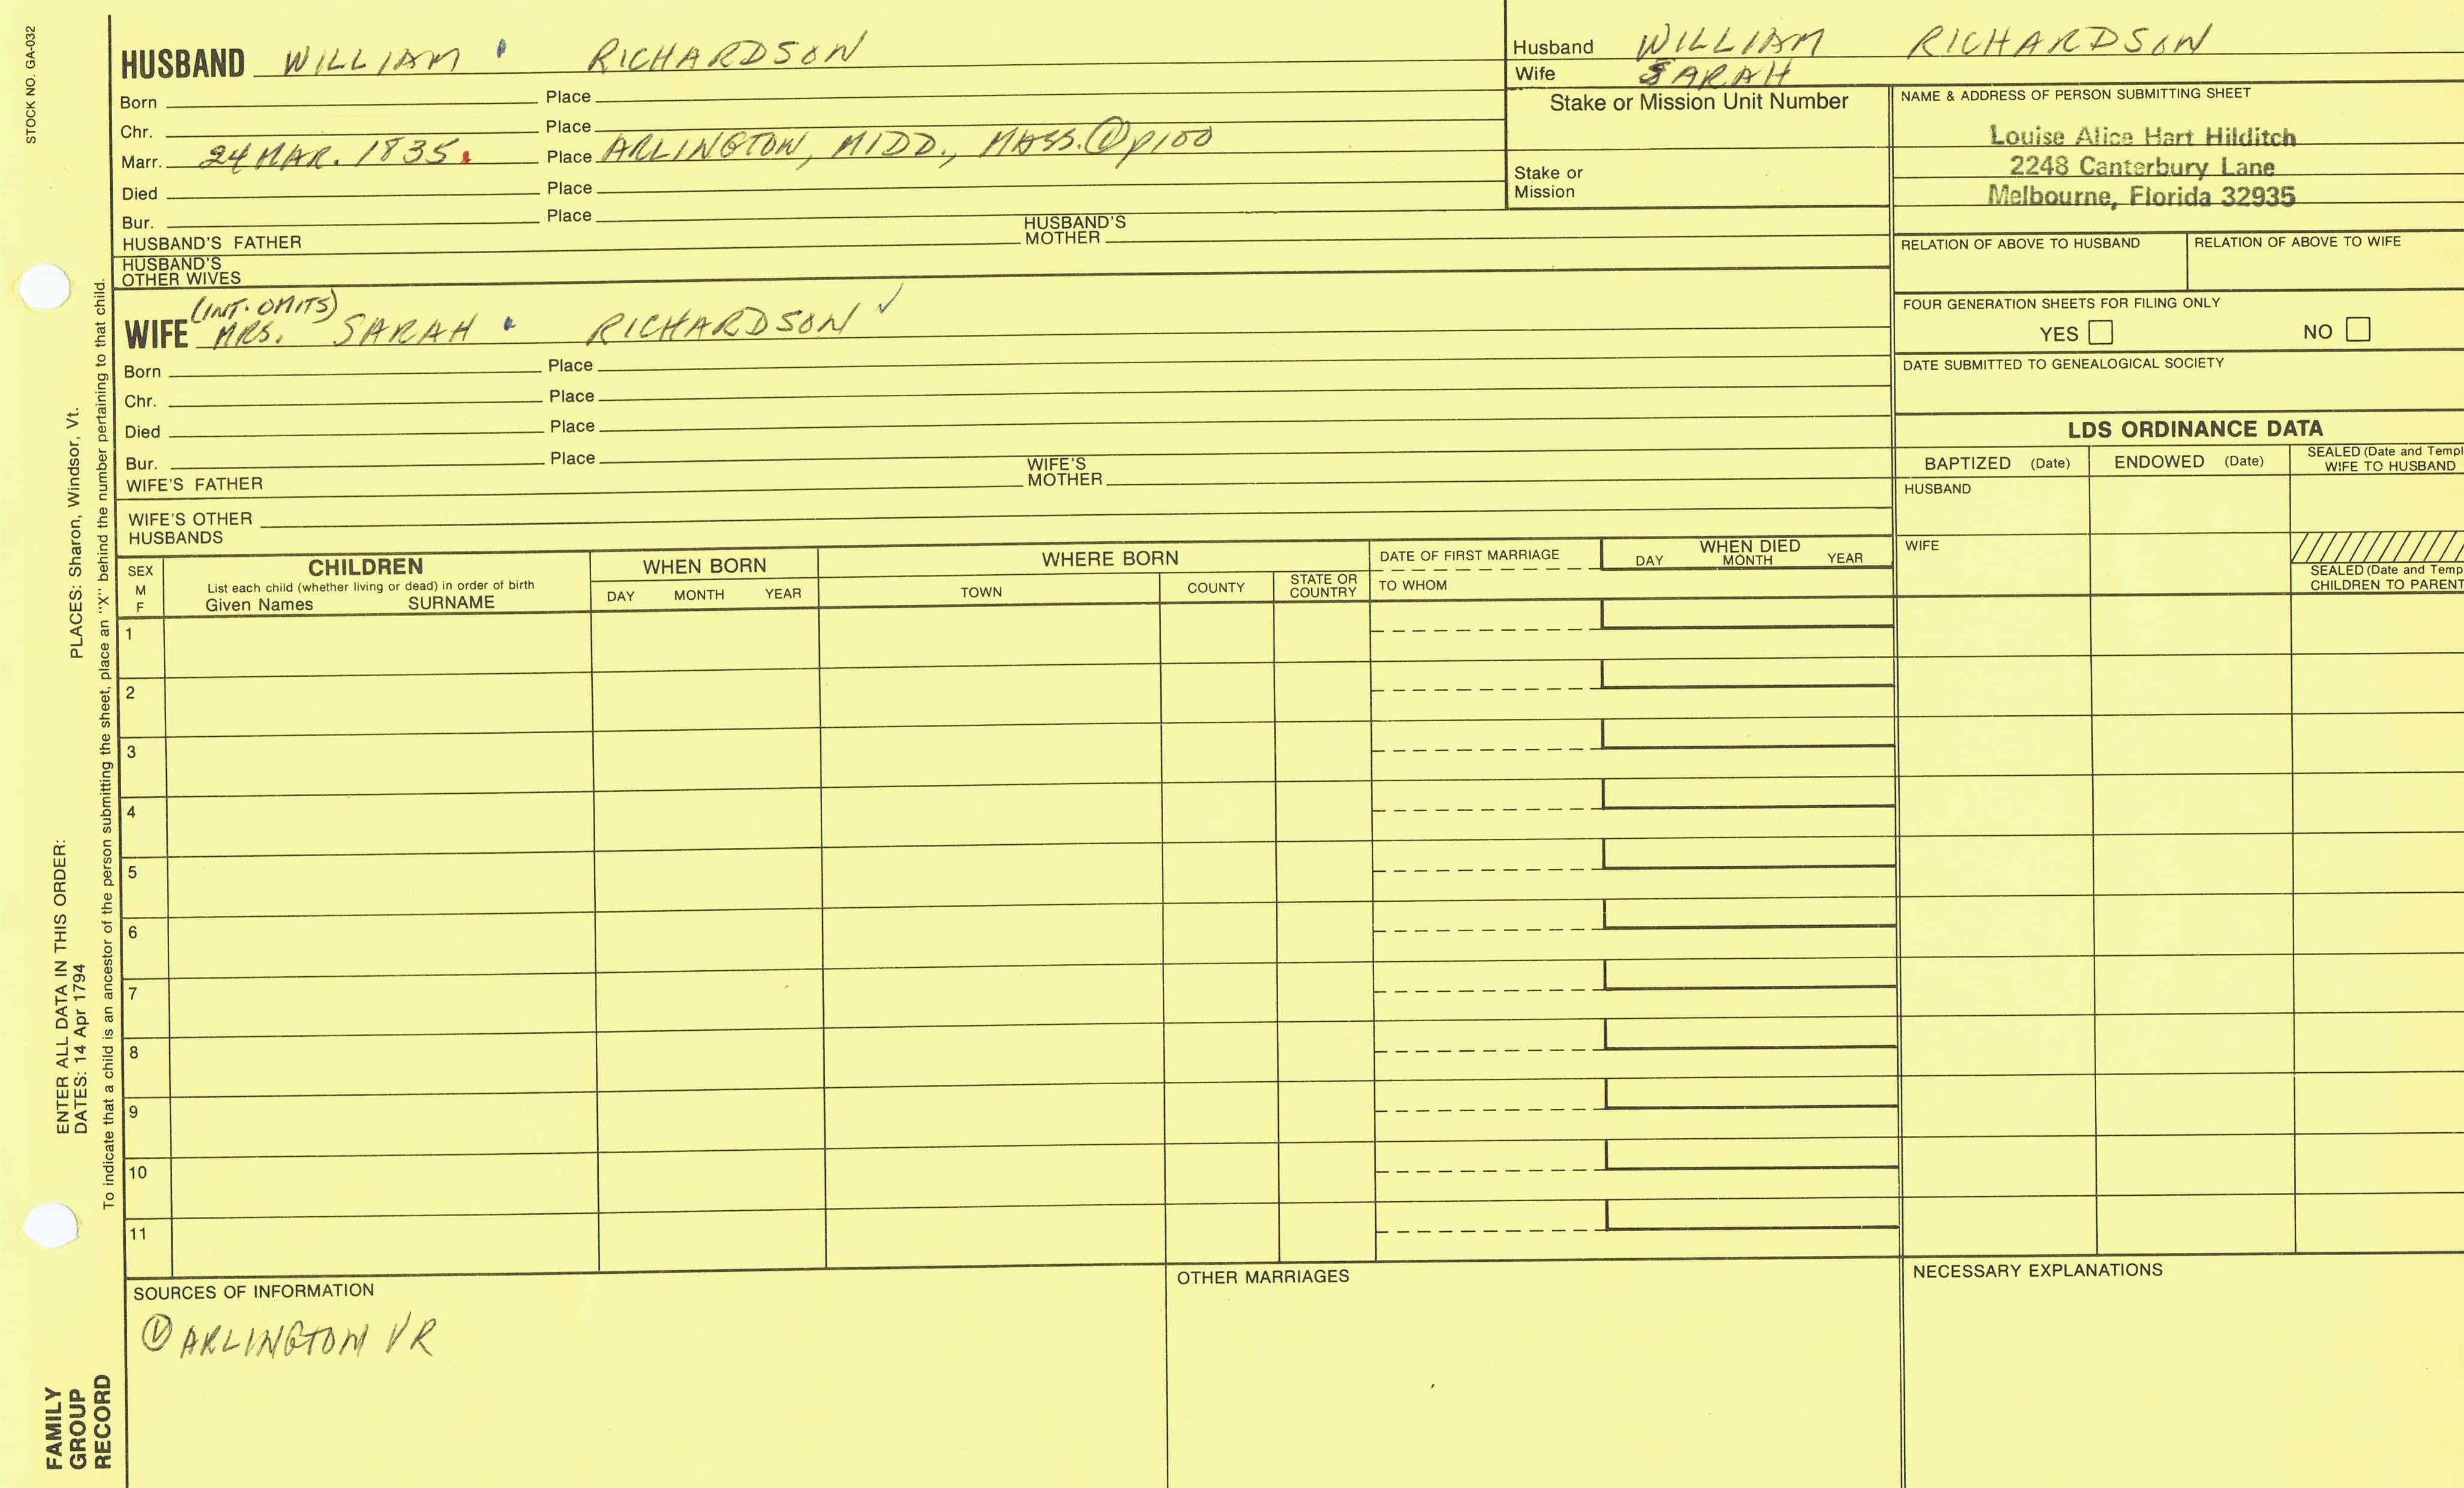 STOCK NO. GA-032
HUSBAND WILLIAM RICHARDSON
Born Place
Chr. Place
Marr. 24 MAR. 1835. Place ARLINGTON, MIDD., MASS. ① p100
Died Place
Bur. Place
HUSBAND'S FATHER HUSBAND'S MOTHER
HUSBAND'S OTHER WIVES
(INT. OMITS)
WIFE MRS. SARAH RICHARDSON ✓
Born Place
Chr. Place
Died Place
Bur. Place
WIFE'S FATHER WIFE'S MOTHER
WIFE'S OTHER HUSBANDS
Husband WILLIAM RICHARDSON
Wife SARAH
Stake or Mission Unit Number
Stake or Mission
NAME & ADDRESS OF PERSON SUBMITTING SHEET
Louise Alice Hart Hilditch
2248 Canterbury Lane
Melbourne, Florida 32935
RELATION OF ABOVE TO HUSBAND RELATION OF ABOVE TO WIFE
FOUR GENERATION SHEETS FOR FILING ONLY
YES NO
DATE SUBMITTED TO GENEALOGICAL SOCIETY
LDS ORDINANCE DATA
BAPTIZED (Date) ENDOWED (Date) SEALED (Date and Templ
WIFE TO HUSBAND
HUSBAND
WIFE
SEALED (Date and Temp
CHILDREN TO PARENT
SEX M F
CHILDREN
List each child (whether living or dead) in order of birth
Given Names SURNAME
WHEN BORN
DAY MONTH YEAR
WHERE BORN
TOWN COUNTY STATE OR COUNTRY
DATE OF FIRST MARRIAGE
TO WHOM
WHEN DIED
DAY MONTH YEAR
1
2
3
4
5
6
7
8
9
10
11
SOURCES OF INFORMATION
① ARLINGTON VR
OTHER MARRIAGES
NECESSARY EXPLANATIONS
PLACES: Sharon, Windsor, Vt.
ENTER ALL DATA IN THIS ORDER:
DATES: 14 Apr 1794
To indicate that a child is an ancestor of the person submitting the sheet, place an "X" behind the number pertaining to that child.
FAMILY
GROUP
RECORD